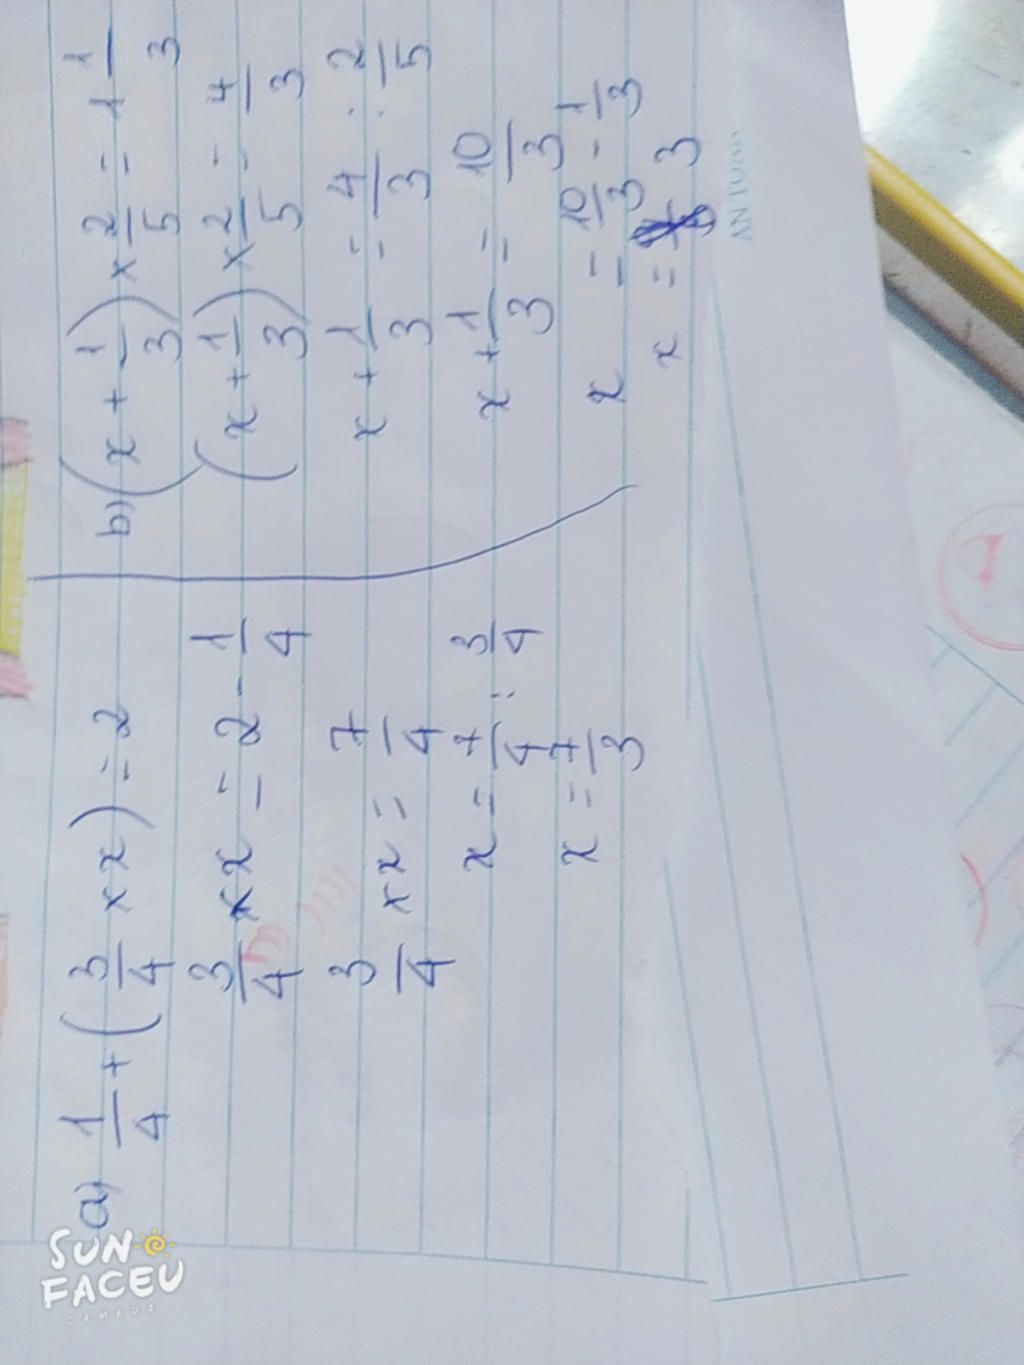 a) 1/4 + (3/4 x x) = 2
3/4 x x = 2 - 1/4
3/4 x x = 7/4
x = 7/4 : 3/4
x = 7/3
b) (x + 1/3) x 2/5 = 1 1/3
(x + 1/3) x 2/5 = 4/3
x + 1/3 = 4/3 : 2/5
x + 1/3 = 10/3
x = 10/3 - 1/3
x = 3
SUN
FACEU
CAMERA